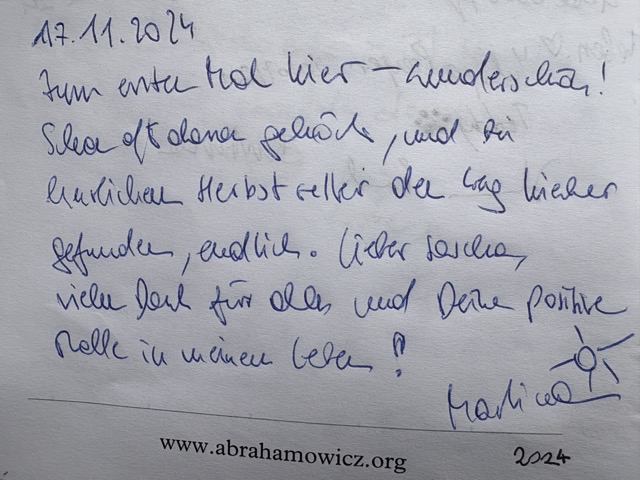 17.11.2024
Zum ersten Mal hier – wunderschön!
Schon oft davon gehört, und bei
herrlichem Herbstwetter den Weg hierher
gefunden, endlich. Lieber Sascha,
vielen Dank für alles und Deine positive
Rolle in meinem Leben!
Martina
www.abrahamowicz.org
2024